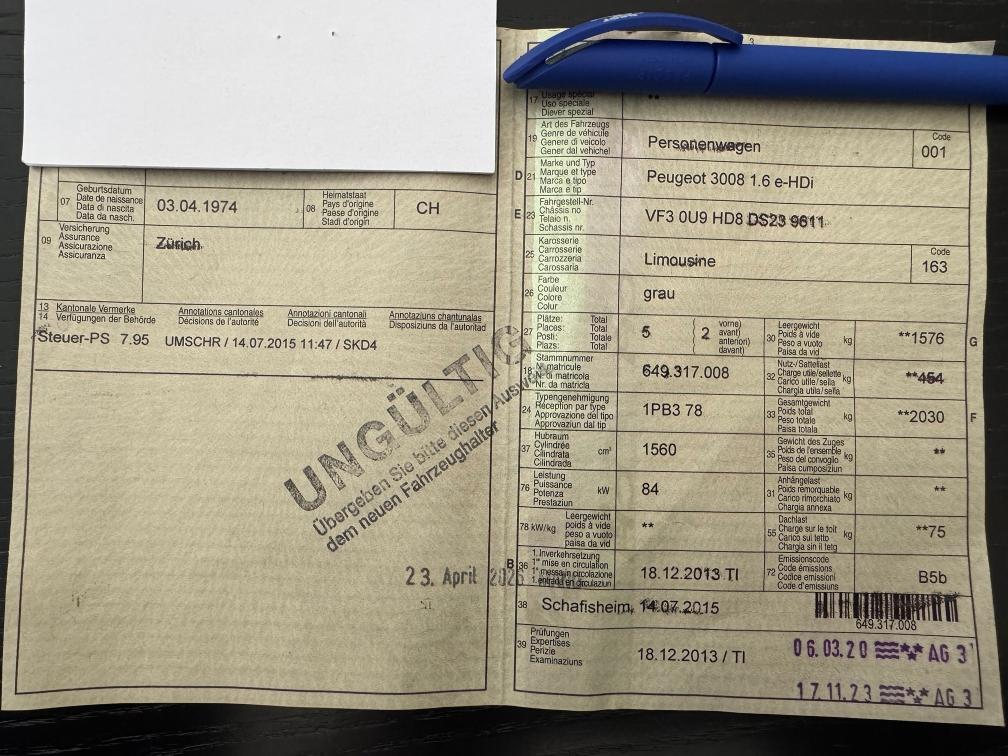 07
Geburtsdatum
Date de naissance
Data di nascita
Data da nasch.
03.04.1974
08
Heimatstaat
Pays d'origine
Paese d'origine
Stadi d'origin
CH
09
Versicherung
Assurance
Assicurazione
Assicuranza
Zürich
13 Kantonale Vermerke Annotations cantonales Annotazioni cantonali Annotaziuns chantunalas
14 Verfügungen der Behörde Décisions de l'autorité Decisioni dell'autorità Disposiziuns da l'autoritad
Steuer-PS 7.95 UMSCHR / 14.07.2015 11:47 / SKD4
UNGÜLTIG
Übergeben Sie bitte diesen Ausweis
dem neuen Fahrzeughalter
23. April
17
Usage spécial
Uso speciale
Diever spezial
**
19
Art des Fahrzeugs
Genre de véhicule
Genere di veicolo
Gener dal vehichel
Personenwagen
Code
001
D 21
Marke und Typ
Marque et type
Marca e tipo
Marca e tip
Peugeot 3008 1.6 e-HDi
E 23
Fahrgestell-Nr.
Châssis no
Telaio n.
Schassis nr.
VF3 0U9 HD8 DS23 9611
25
Karosserie
Carrosserie
Carrozzeria
Carossaria
Limousine
Code
163
26
Farbe
Couleur
Colore
Colur
grau
27
Plätze: Total
Places: Total
Posti: Totale
Plazs: Total
5
2
vorne)
avant)
anteriori)
davant)
30
Leergewicht
Poids à vide
Peso a vuoto
Paisa da vid
kg
**1576
G
18
Stammnummer
N° matricule
N. di matricola
Nr. da matricla
649.317.008
32
Nutz-/Sattellast
Charge utile/sellette
Carico utile/sella
Chargia utila/sella
kg
**454
24
Typengenehmigung
Réception par type
Approvazione del tipo
Approvaziun dal tip
1PB3 78
33
Gesamtgewicht
Poids total
Peso totale
Paisa totala
kg
**2030
F
37
Hubraum
Cylindrée
Cilindrata
Cilindrada
cm³
1560
35
Gewicht des Zuges
Poids de l'ensemble
Peso del convoglio
Paisa cumposiziun
kg
**
76
Leistung
Puissance
Potenza
Prestaziun
kW
84
31
Anhängelast
Poids remorquable
Carico rimorchiato
Chargia annexa
kg
**
78 kW/kg
Leergewicht
poids à vide
peso a vuoto
paisa da vid
**
55
Dachlast
Charge sur le toit
Carico sul tetto
Chargia sin il tetg
kg
**75
B 36
1. Inverkehrsetzung
1re mise en circulation
1a messa in circolazione
1. entrada en circulaziun
18.12.2013 TI
72
Emissionscode
Code émissions
Codice emissioni
Code d'emissiuns
B5b
38 Schafisheim, 14.07.2015
649.317.008
39
Prüfungen
Expertises
Perizie
Examinaziuns
18.12.2013 / TI
06.03.20 AG 3
17.11.23 AG 3